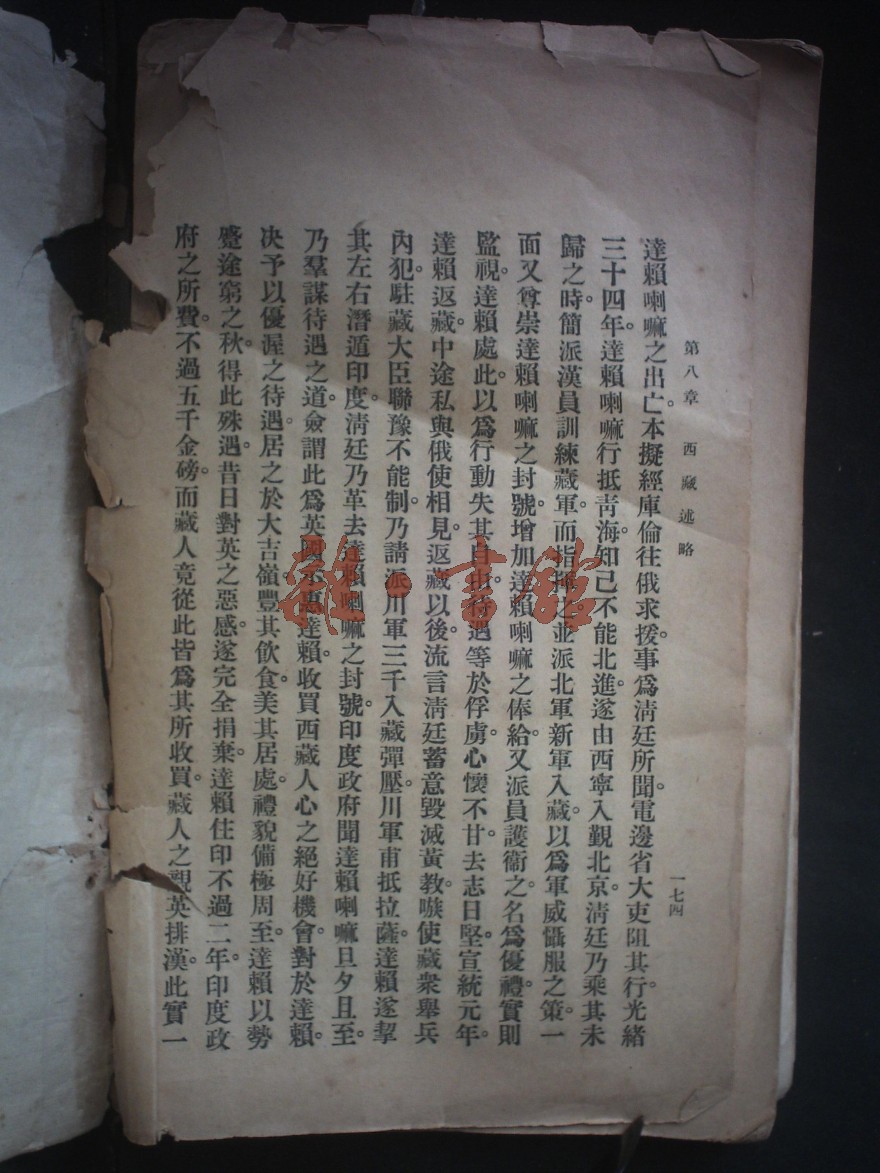 第八章 西藏述略 一七四
達賴喇嘛之出亡。本擬經庫倫往俄求援。事爲淸廷所聞。電邊省大吏阻其行。光緖
三十四年。達賴喇嘛行抵靑海。知已不能北進。遂由西寧入覲北京。淸廷乃乘其未
歸之時。簡派漢員訓練藏軍。而指揮之。並派北軍新軍入藏。以爲軍威懾服之策。一
面又尊崇達賴喇嘛之封號。增加達賴喇嘛之俸給。又派員護衞之。名爲優禮。實則
監視。達賴處此。以爲行動失其自由。待遇等於俘虜。心懷不甘。去志日堅。宣統元年。
達賴返藏。中途私與俄使相見。返藏以後。流言淸廷蓄意毀滅黃敎。嗾使藏衆舉兵
內犯。駐藏大臣聯豫不能制。乃請派川軍三千入藏彈壓。川軍甫抵拉薩。達賴遂挈
其左右潛遁印度。淸廷乃革去達賴喇嘛之封號。印度政府聞達賴喇嘛旦夕且至。
乃羣謀待遇之道。僉謂此爲英國示惠達賴。收買西藏人心之絕好機會。對於達賴。
决予以優渥之待遇。居之於大吉嶺。豐其飲食。美其居處。禮貌備極周至。達賴以勢
蹙途窮之秋。得此殊遇。昔日對英之惡感。遂完全捐棄。達賴住印不過二年。印度政
府之所費。不過五千金磅。而藏人竟從此皆爲其所收買。藏人之親英排漢。此實一
雜·書館